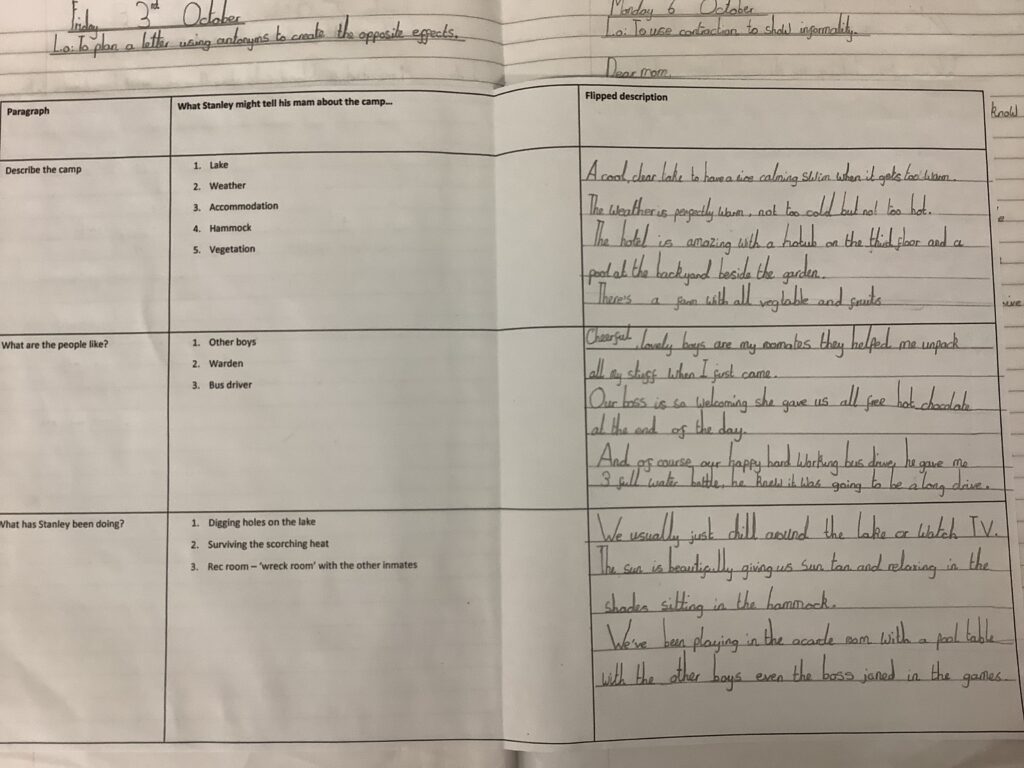 Friday 3rd October
Lo: To plan a letter using antonyms to create the opposite effects.
Monday 6 October
Lo: To use contraction to show informality.
Dear mom,
know
Paragraph
What Stanley might tell his mam about the camp...
Flipped description
Describe the camp
1. Lake
2. Weather
3. Accommodation
4. Hammock
5. Vegetation
A cool, clear lake to have a nice calming swim when it gets too warm.
The weather is perfectly warm, not too cold but not too hot.
The hotel is amazing with a hotub on the third floor and a
pool at the backyard beside the garden.
There's a farm with all vegtable and fruits
What are the people like?
1. Other boys
2. Warden
3. Bus driver
Cheerful, lovely boys are my roomates they helped me unpack
all my stuff when I just came.
Our boss is so welcoming she gave us all free hot chocolate
at the end of the day.
And of course our happy hard working bus driver, he gave me
3 full water bottle, he knew it was going to be a long drive.
What has Stanley been doing?
1. Digging holes on the lake
2. Surviving the scorching heat
3. Rec room – 'wreck room' with the other inmates
We usually just chill around the lake or watch TV.
The sun is beautifully giving us sun tan and relaxing in the
shades sitting in the hammock.
We've been playing in the acarde room with a pool table
with the other boys even the boss joned in the games